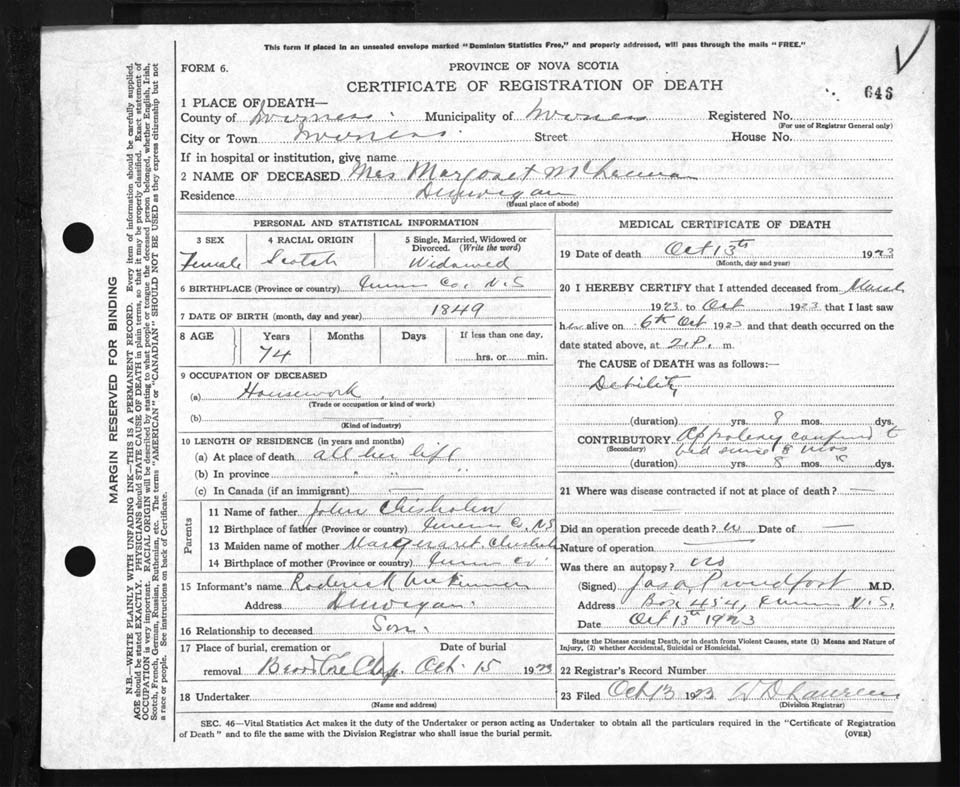 This form if placed in an unsealed envelope marked "Dominion Statistics Free," and properly addressed, will pass through the mails "FREE."
FORM 6.
PROVINCE OF NOVA SCOTIA
CERTIFICATE OF REGISTRATION OF DEATH
646
1 PLACE OF DEATH—
County of Inverness Municipality of Inverness Registered No.
(For use of Registrar General only)
City or Town Inverness Street House No.
If in hospital or institution, give name
2 NAME OF DECEASED Mrs Margaret
Residence Dunvegan
(Usual place of abode)
PERSONAL AND STATISTICAL INFORMATION
3 SEX 4 RACIAL ORIGIN 5 Single, Married, Widowed or Divorced. (Write the word)
Female Scotch Widowed
6 BIRTHPLACE (Province or country) Inverness Co, N.S
7 DATE OF BIRTH (month, day and year) 1849
8 AGE Years Months Days If less than one day,
74 hrs. or min.
9 OCCUPATION OF DECEASED
(a) Housework
(Trade or occupation or kind of work)
(b)
(Kind of industry)
10 LENGTH OF RESIDENCE (in years and months)
(a) At place of death all her life
(b) In province " " "
(c) In Canada (if an immigrant)
Parents
11 Name of father John Chisholm
12 Birthplace of father (Province or country) Inverness Co, NS
13 Maiden name of mother Margaret Chisholm
14 Birthplace of mother (Province or country) Inverness Co
15 Informant's name Roderick
Address Dunvegan
16 Relationship to deceased Son
17 Place of burial, cremation or Date of burial
removal Oct. 15 1923
18 Undertaker
(Name and address)
MEDICAL CERTIFICATE OF DEATH
19 Date of death Oct 13th 1923
(Month, day and year)
20 I HEREBY CERTIFY that I attended deceased from March
1923 to Oct 1923 that I last saw
her alive on 6th Oct 1923 and that death occurred on
date stated above, at 2 P. m.
The CAUSE of DEATH was as follows:—
Debility
(duration) yrs. 8 mos. dys.
CONTRIBUTORY Apoplexy confined to
(Secondary) bed since 8 mos
(duration) yrs. 8 mos. dys.
21 Where was disease contracted if not at place of death?
Did an operation precede death? no Date of
Nature of operation
Was there an autopsy? no
(Signed) M.D.
Address Box 454, Inverness N.S.
Date Oct 13th 1923
State the Disease causing Death, or in death from Violent Causes, state (1) Means and Nature of Injury, (2) whether Accidental, Suicidal or Homicidal.
22 Registrar's Record Number
23 Filed Oct 13 1923
(Division Registrar)
SEC. 46—Vital Statistics Act makes it the duty of the Undertaker or person acting as Undertaker to obtain all the particulars required in the "Certificate of Registration
of Death" and to file the same with the Division Registrar who shall issue the burial permit. (OVER)
MARGIN RESERVED FOR BINDING
N.B.—WRITE PLAINLY WITH UNFADING INK—THIS IS A PERMANENT RECORD. Every item of information should be carefully supplied.
AGE should be stated EXACTLY. PHYSICIANS should STATE CAUSE OF DEATH in plain terms, so that it may be properly classified. Exact statement of
OCCUPATION is very important. RACIAL ORIGIN will be described by stating to what people or tongue the deceased person belonged, whether English, Irish,
Scotch, French, German, Russian, Ruthenian, etc. The terms "AMERICAN" or "CANADIAN" SHOULD NOT BE USED as they express citizenship but not
a race or people. See instructions on back of Certificate.